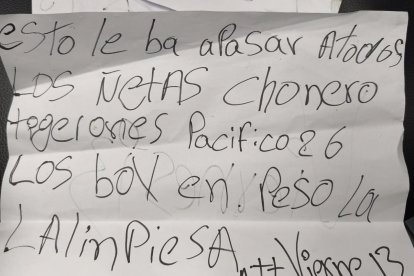 esto le ba apasar Atodos
LOS ÑetAS chonero
tegerones Pacifico 26
LOS bOX en. PesO La
LALinPiesA